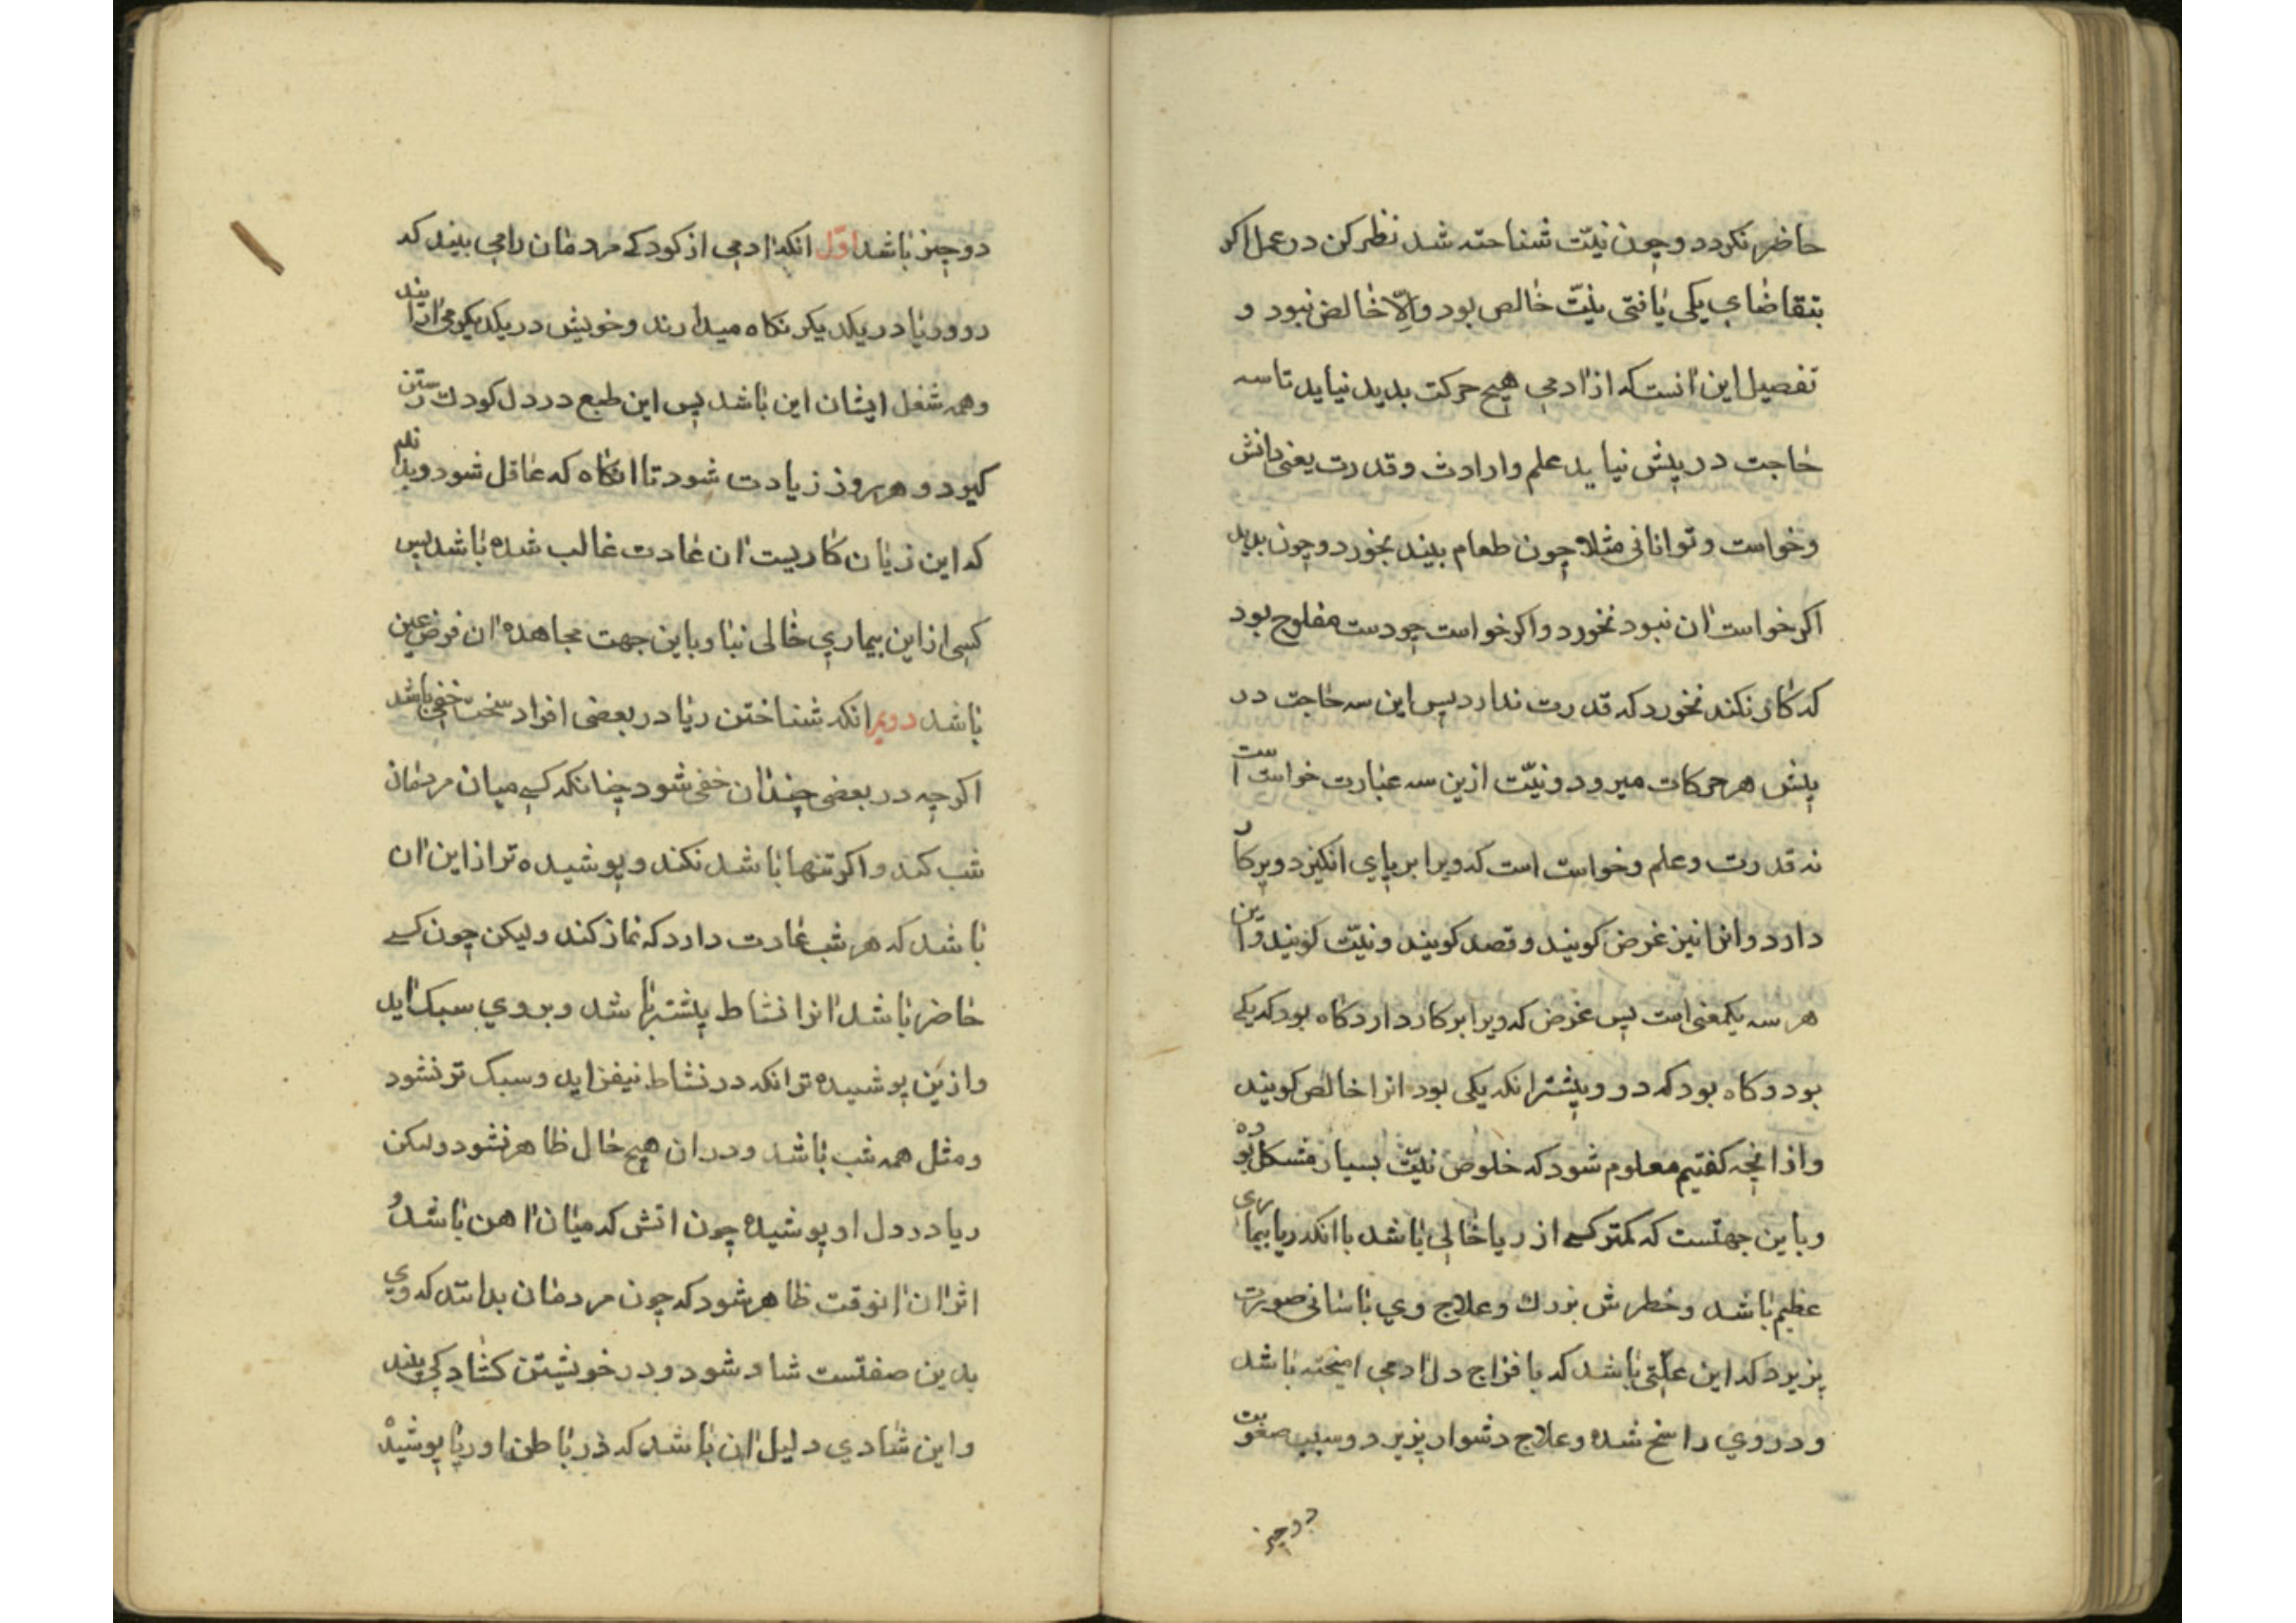 حاضر نکردد و چون نیّت شناخته شد نظر کن در عمل اکر
بتقاضاي یکی یافتی نیّت خالص بود والّا خالص نبود و
تفصیل این آنست که از آدمي هیچ حرکت پدید نیاید تا سه
حاجت در پیش نیاید علم و ارادت و قدرت یعنی دانش
و خواست و توانائی مثلا چون طعام بیند بخورد و چون بدید
اکر خواست آن نبود نخورد و اکر خواست چو دست مفلوج بود
که کار نکند نخورد که قدرت ندارد پس این سه حاجت در
پیش هر حرکات میرود و نیّت ازین سه عبارت خواست است
نه قدرت و علم و خواست است که ویرا بر پاي انکیزد و بر کار
دارد و انرا نیز غرض کویند و قصد کویند و نیّت کویند و این
هر سه یکمعنی است پس غرض که ویرا بر کار دارد کاه بود که یکے
بود و کاه بود که دو و بیشتر انکه یکی بود انرا خالص کویند
و از انچه کفتیم معلوم شود که خلوص نیّت بسیار مشکل بوده
و باین جهتست که کمتر کسے از ریا خالي باشد با انکه ریا بیماری
عظیم باشد و خطرش بزرك و علاج وي باسانی صورت
پزیرد که این علّتی باشد که با مزاج دل آدمي امیخته باشد
و در وي راسخ شده و علاج دشوار پزیرد و سبب صعوبت
دو چیز
دو چیز باشد اوّل انکه آدمي از کودکے مردمان را مي بیند که
رو و ریا در یکدیکر نکاه میدارند و خویش در یکدیکر مي ارایند
و همه شغل ایشان این باشد پس این طبع در دل کودك رستن
کیرد و هر روز زیادت شود تا انکاه که عاقل شود و بداند
که این زیان کاریست آن عادت غالب شده باشد پس
کسي از این بیماري خالی نباشد و باین جهت مجاهده آن فرض عین
باشد دویم انکه شناختن ریا در بعضی افراد سخت خفي باشد
اکر چه در بعضی چندان خفي شود چنانکه کسے میان مردمان
شب کند و اکر تنها باشد نکند و پوشیده تر از این آن
باشد که هر شب عادت دارد که نماز کند ولیکن چون کسے
حاضر باشد انرا نشاط بیشتر باشد و بر وي سبک آید
و ازین پوشیده تر انکه در نشاط نیفزاید و سبک تر نشود
و مثل همه شب باشد و در ان هیچ حال ظاهر نشود ولیکن
ریا در دل او پوشیده چون اتش که میان آهن باشد و
اثر آن آنوقت ظاهر شود که چون مردمان بدانند که وي
بدین صفتست شاد شود و در خویشتن کشادکي بیند
و این شادي دلیل آن باشد که در باطن او ریا پوشیده